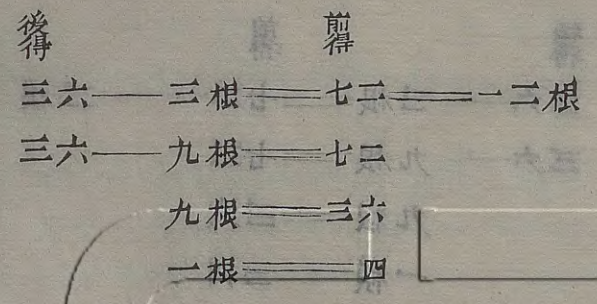 後得 前得
三六——三根══七二══一二根
三六——九根══七二
九根══三六
一根══四